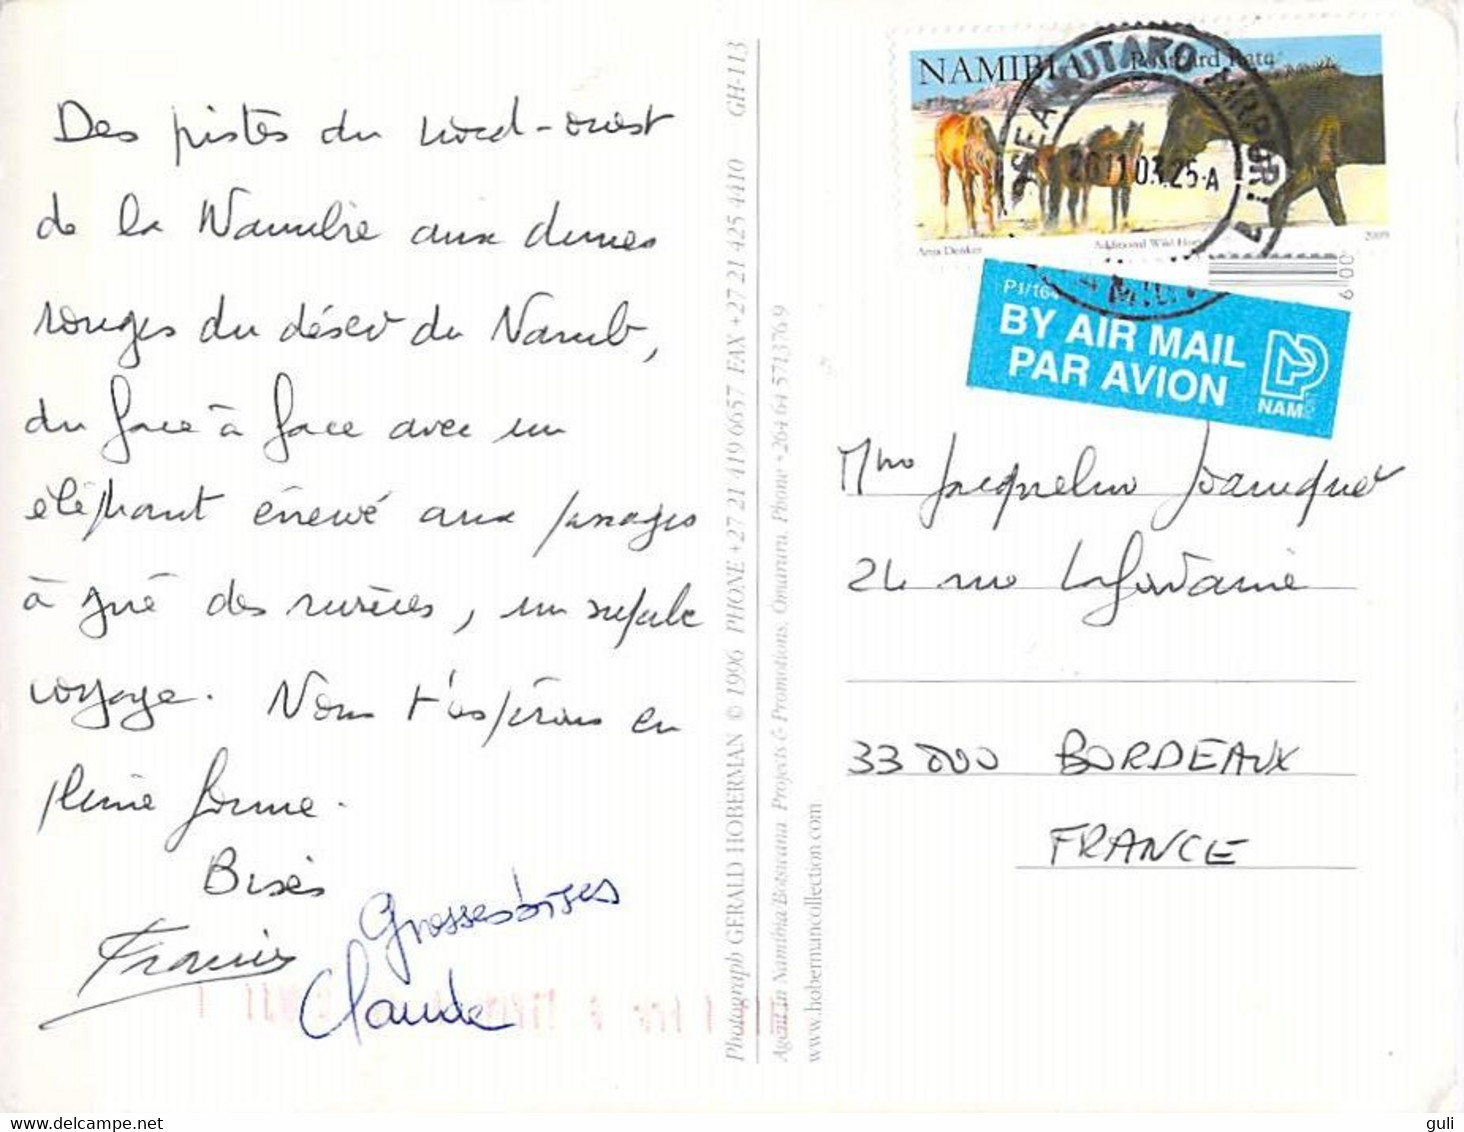 Des pistes du nord-ouest
de la Namibie aux dunes
rouges du désert du Namib,
du face à face avec un
éléphant énervé aux passages
à gué des rivières, un superbe
voyage. Nous t'espérons en
pleine forme.
Bises
Francis
Grosses bises
Claude
Photograph GERALD HOBERMAN © 1996 PHONE +27 21 419 6657 FAX +27 21 425 4410 GH-113
Agent in Namibia/Botswana Projects & Promotions, Omaruru, Phone +264 64 571376/9
www.hobermancollection.com
NAMIBIA Postcard Rate
Additional Wild
2009
2011 03. 25-A
P1/164
BY AIR MAIL
PAR AVION
NAM
009
Mme Jacqueline
24 rue Lafontaine
33 000 BORDEAUX
FRANCE
guli